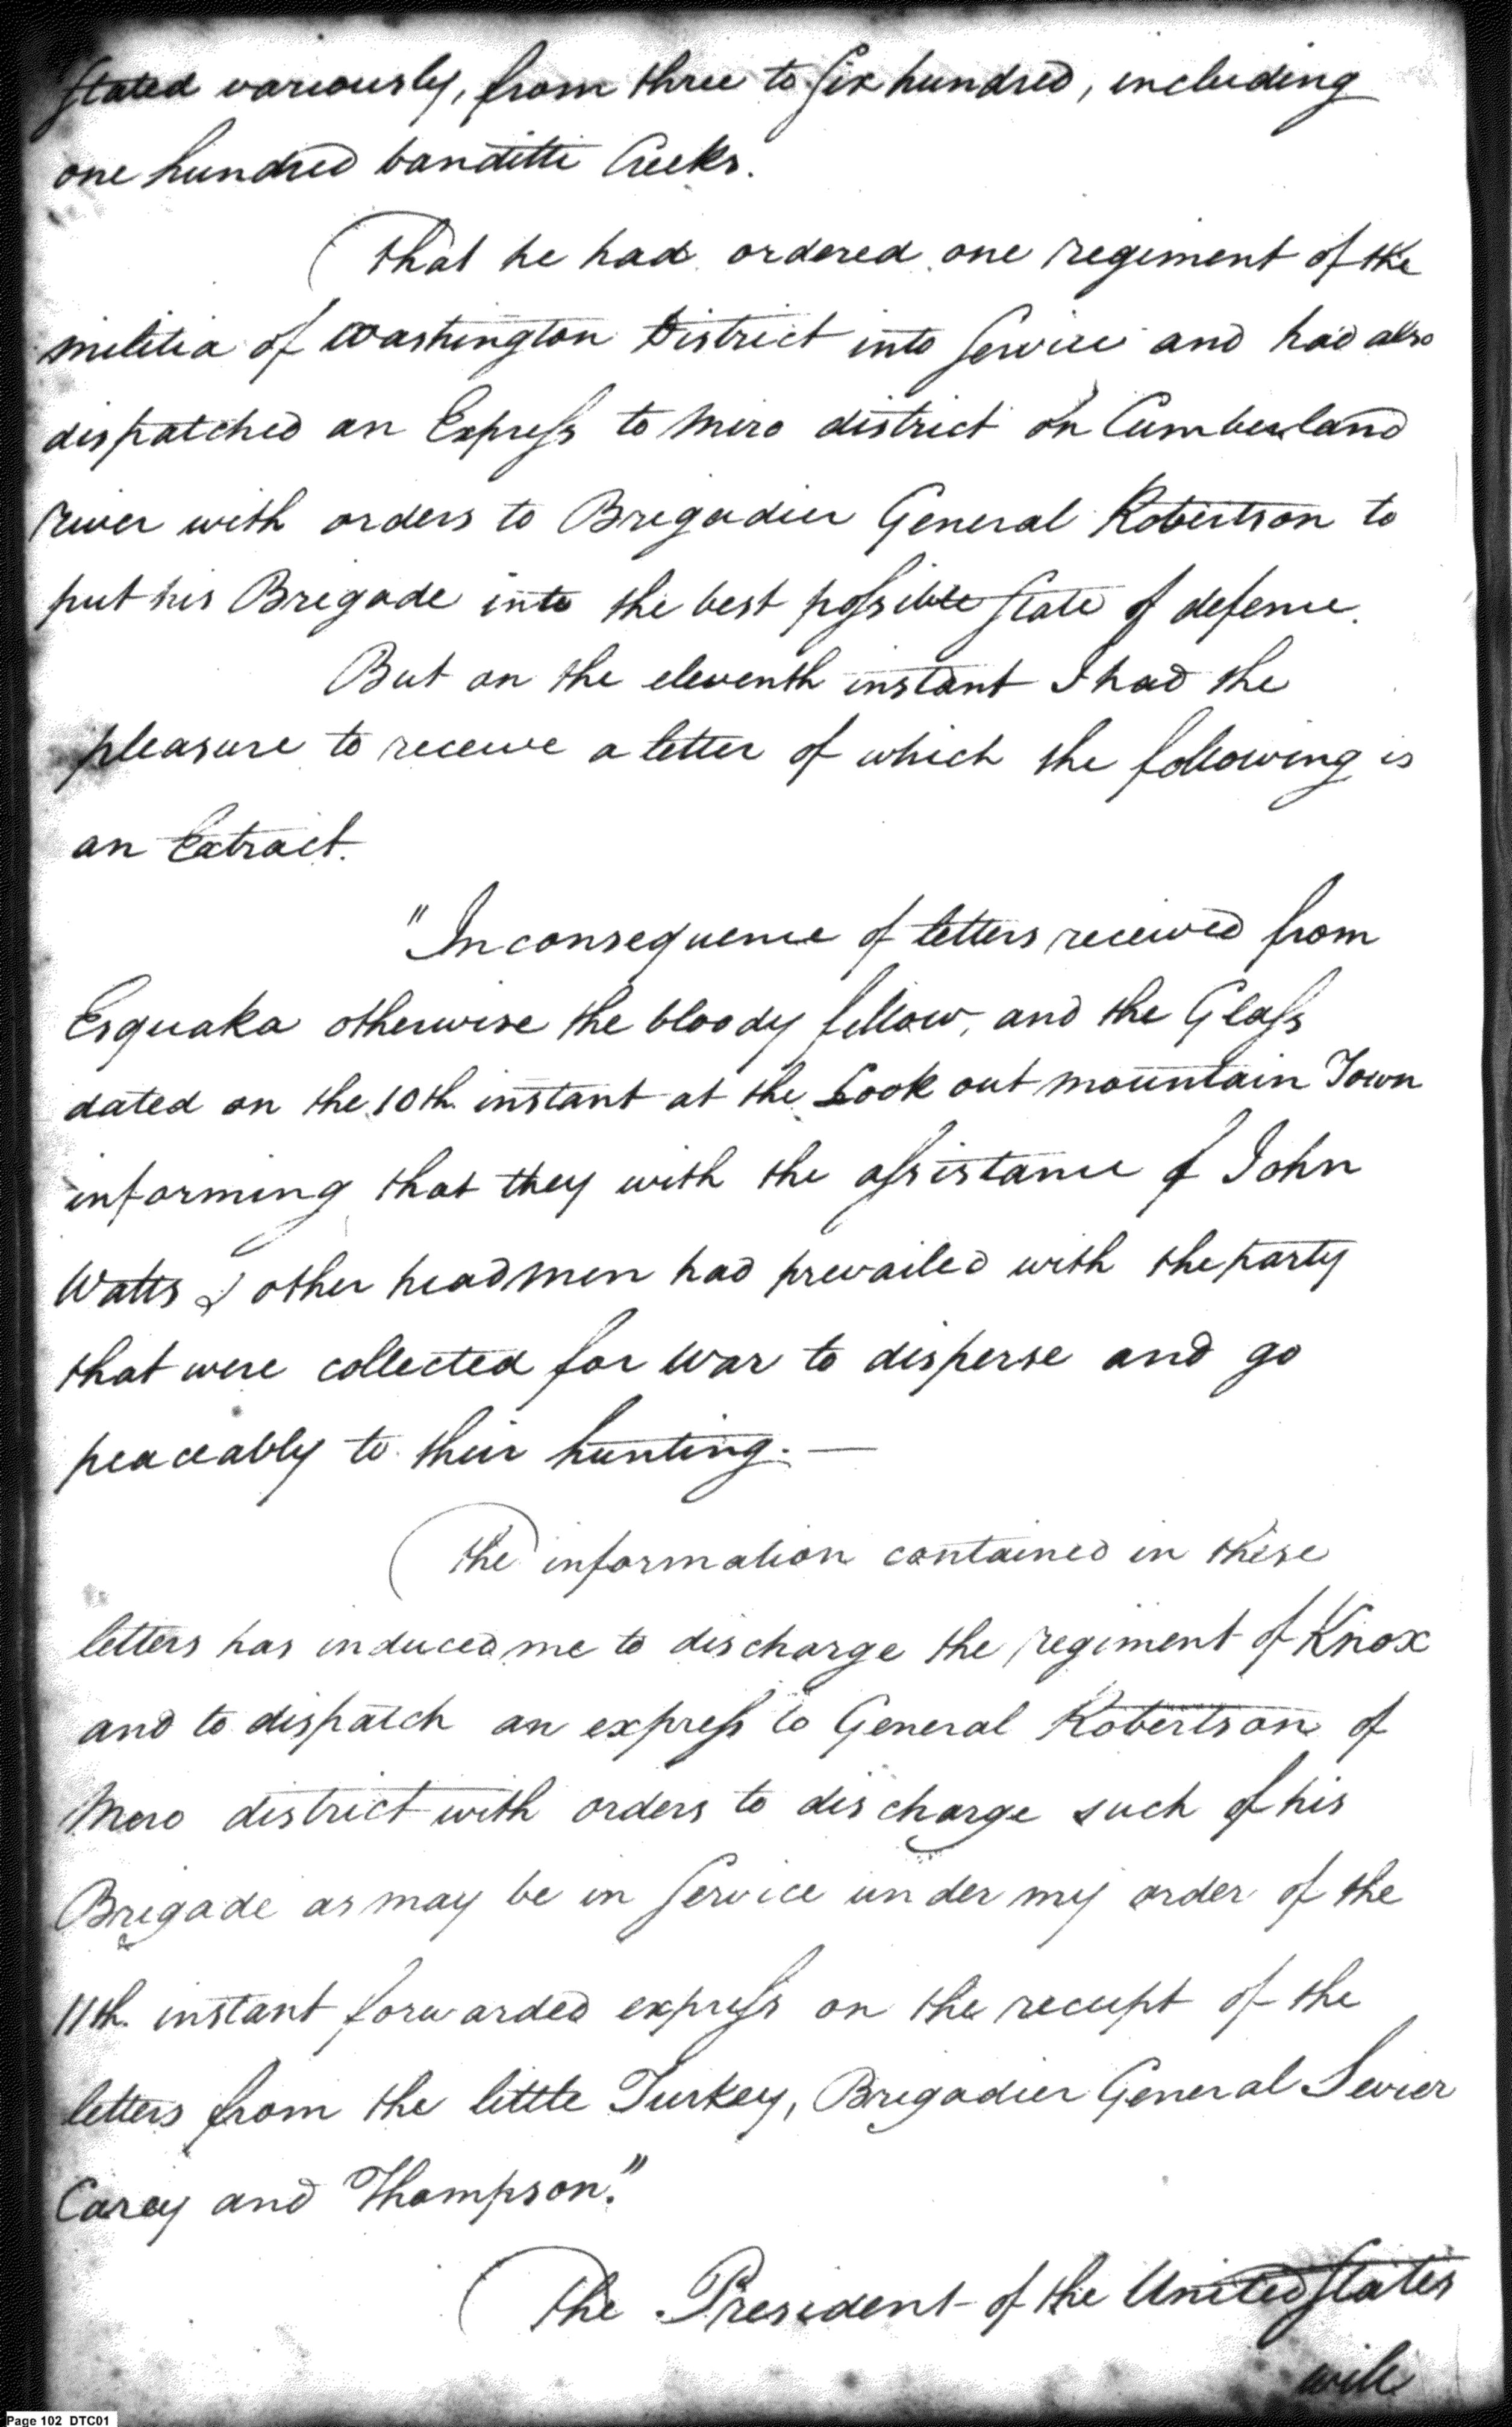 stated variously, from three to six hundred, including
one hundred banditti Creeks.
That he had ordered one regiment of the
militia of Washington District into service and had also
dispatched an Express to Miro district on Cumberland
river with orders to Brigadier General Robertson to
put his Brigade into the best possible state of defence.
But on the eleventh instant I had the
pleasure to receive a letter of which the following is
an Extract.
"In consequence of letters received from
Esquaka otherwise the bloody fellow, and the Glass
dated on the 10th. instant at the Look out mountain Town
informing that they with the assistance of John
Watts & other headmen had prevailed with the party
that were collected for war to disperse and go
peaceably to their hunting. —
The information contained in these
letters has induced me to discharge the regiment of Knox
and to dispatch an express to General Robertson of
Mero district with orders to discharge such of his
Brigade as may be in service under my order of the
11th. instant forwarded express on the receipt of the
letters from the little Turkey, Brigadier General Sevier
Carey and Thompson."
The President of the United States
will
Page 102 DTC01